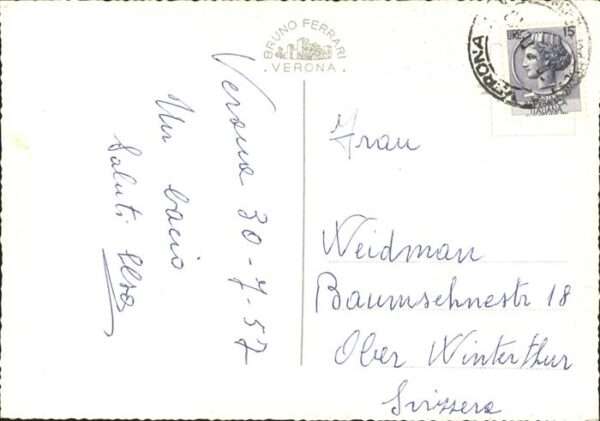 BRUNO FERRARI
. VERONA .
Verona 30-7-57
Un bacio
Saluti Elsa
LIRE 15
ITALIANA
VERONA
Frau
Weidman
Baumschnestr 18
Ober Winterthur
Svizzera